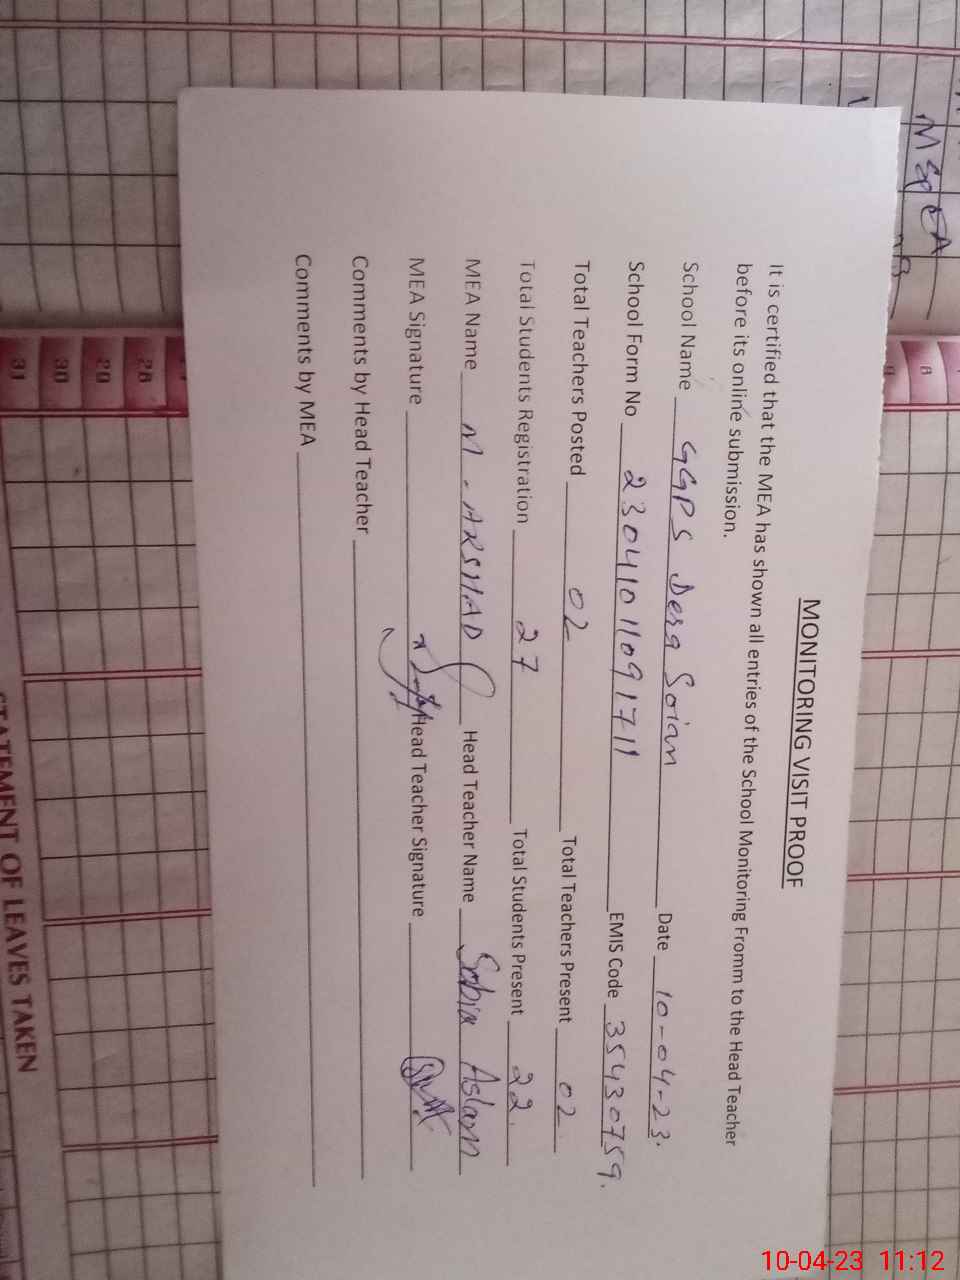 MONITORING VISIT PROOF
It is certified that the MEA has shown all entries of the School Monitoring Fromm to the Head Teacher
before its online submission.
School Name GGPS Dera Soian Date 10-04-23.
School Form No 2304101109171 EMIS Code 35430759.
Total Teachers Posted 02 Total Teachers Present 02
Total Students Registration 27 Total Students Present 22.
MEA Name M. ARSHAD Head Teacher Name Sobia Aslam
MEA Signature Head Teacher Signature
Comments by Head Teacher
Comments by MEA
28
29
30
31
STATEMENT OF LEAVES TAKEN
10-04-23 11:12